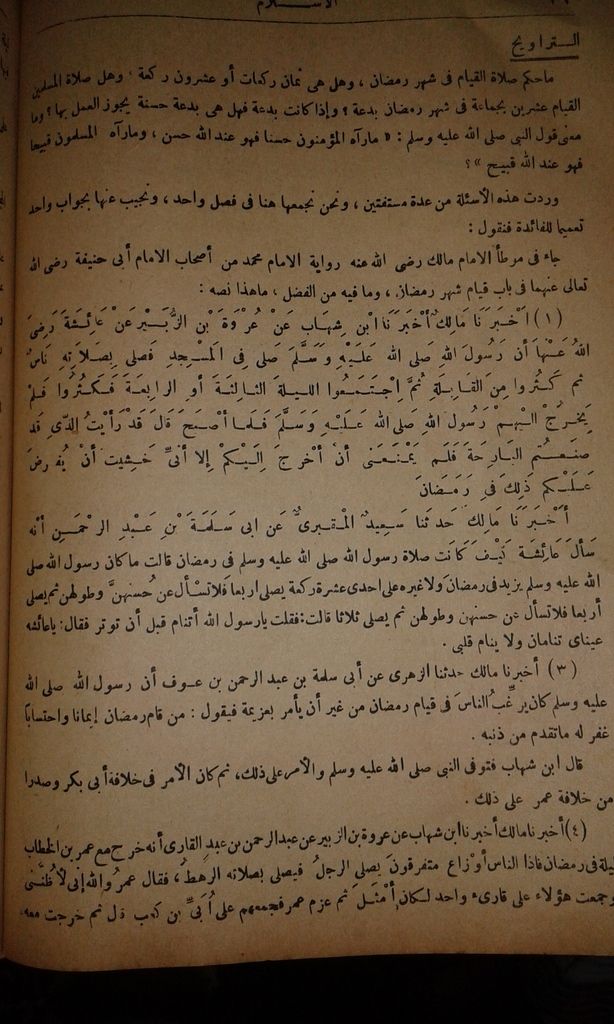 الاسلام
التراويح
ماحكم صلاة القيام فى شهر رمضان ، وهل هى ثمان ركعات أو عشرون ركعة ؛ وهل صلاة المسلمين
القيام عشرين بجماعة فى شهر رمضان بدعة ؟ وإذا كانت بدعة فهل هى بدعة حسنة يجوز العمل بها ؟ وما
معنى قول النبى صلى الله عليه وسلم : « مارآه المؤمنون حسنا فهو عند الله حسن ، ومارآه المسلمون قبيحا
فهو عند الله قبيح » ؟
وردت هذه الأسئلة من عدة مستفتين ، ونحن نجمعها هنا فى فصل واحد ، ونجيب عنها بجواب واحد
تعميما للفائدة فنقول :
جاء فى موطأ الامام مالك رضى الله عنه رواية الامام محمد من أصحاب الامام أبى حنيفة رضى الله
تعالى عنهما فى باب قيام شهر رمضان ، وما فيه من الفضل ، ماهذا نصه :
(١) أَخْبَرَنَا مَالِكٌ أَخْبَرَنَا ابْن شِهَاب عَنْ عُرْوَةَ بْنِ الزُّبَيْرِ عَنْ عَائِشَةَ رَضِىَ
اللهُ عَنْهَا أَن رَسُولَ اللهِ صَلى الله عَلَيْهِ وَسَلَّمَ صَلى فِى المَسْجِدِ فَصَلى بِصَلاَتِهِ نَاسٌ
ثم كَثُروا مِنَ القَابِلَةِ ثُمَّ اِجْتَمَعُوا الليلَةَ الثالِثَةَ أَو الرابِعَةَ فَكَثُرُوا فَلمْ
يَخرُجْ الَيْهِمْ رَسُولُ اللهِ صَلى الله عَلَيْهِ وَسَلَّمَ فَلما أَصْبَحَ قَالَ قَدْ رَأَيْتُ الذى قَد
صَنَعْتُم البَارِحَةَ فَلَم يَمْنَعَنى أَنْ أَخْرجَ إِلَيْكُمْ إِلا أَنى خَشِيت أَنْ يُفْرضَ
عَلَيْكُم ذَلِكَ فِى رَمَضَانَ
أَخْبَرَنَا مَالِكٌ حَدثنَا سَعِيدٌ المَقْبرىُّ عَن ابى سَلَمَةَ بْنِ عَبْدِ الرحْمَنِ أَنه
سَأَلَ عَائِشَةَ كَيْفَ كَانَت صلاة رسول الله صلى الله عليه وسلم فى رمضان قالت ماكان رسول الله صلى
الله عليه وسلم يزيد فى رمضان ولاغيره على احدى عشرة ركعة يصلى اربعا فلا تسأل عن حُسنهنَّ وطولهن ثم يصلى
أربعا فلاتسأل عن حسنهن وطولهن ثم يصلى ثلاثا قالت : فقلت يارسول الله أتنام قبل أن توتر فقال : ياعائشه
عيناى تنامان ولا ينام قلبى .
(٣) أخبرنا مالك حدثنا الزهرى عن أبى سلمة بن عبد الرحمن بن عوف أن رسول الله صلى الله
عليه وسلم كان يرغِّبُ الناسَ فى قيام رمضان من غير أن يأمر بعزيمة فيقول : من قام رمضان إيمانا واحتسابا
غفر له ماتقدم من ذنبه .
قال ابن شهاب فتوفى النبى صلى الله عليه وسلم والأمر على ذلك ، ثم كان الأمر فى خلافة أبى بكر وصدرا
من خلافة عمر على ذلك .
(٤) أخبرنا مالك أخبرنا ابن شهاب عن عروة بن الزبير عن عبد الرحمن بن عبد القارى أنه خرج مع عمر بن الخطاب
ليلة فى رمضان فاذا الناس أوْزاع متفرقون يصلى الرجلُ فيصلى بصلاته الرهطُ ، فقال عمرُ والله إنى لأظُننى
وجمعت هؤلاء على قارىء واحد لكان أَمْثَلَ ثم عزم عمر فجمعهم على أُبَىِّ بن كعب قال ثم خرجت معه